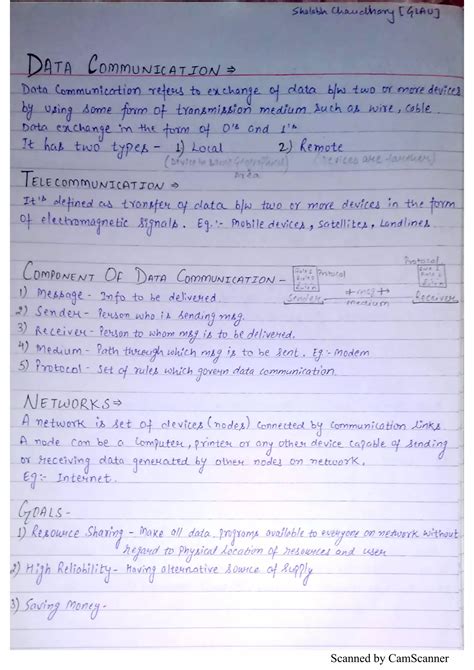 Shalabh Chaudhary [GLAU]
DATA COMMUNICATION ⇒
Data Communication refers to exchange of data b/w two or more devices
by using some form of transmission medium such as wire, cable
Data exchange in the form of 0's and 1's
It has two types - 1) Local 2) Remote
(Devices are farther)
area
TELECOMMUNICATION ⇒
It's defined as transfer of data b/w two or more devices in the form
of electromagnetic signals. Eg.:- Mobile devices, Satellites, Landlines.
Protocol
COMPONENT OF DATA COMMUNICATION -
Rule 1 Protocol Rule 1
Rule 2 Rule 2
Rule n Rule n
1) Message - Info to be delivered. Sender ←msg→ Receiver
medium
2) Sender - Person who is sending msg.
3) Receiver - Person to whom msg is to be delivered.
4) Medium - Path through which msg is to be sent. Eg:- Modem
5) Protocol - Set of rules which govern data communication.
NETWORKS ⇒
A network is set of devices (nodes) connected by communication links
A node can be a Computer, printer or any other device capable of sending
or receiving data generated by other nodes on network.
Eg:- Internet.
GOALS -
1) Resource Sharing - Make all data, programs available to everyone on network without
regard to physical location of resources and user
2) High Reliability - Having alternative source of supply
3) Saving Money -
Scanned by CamScanner